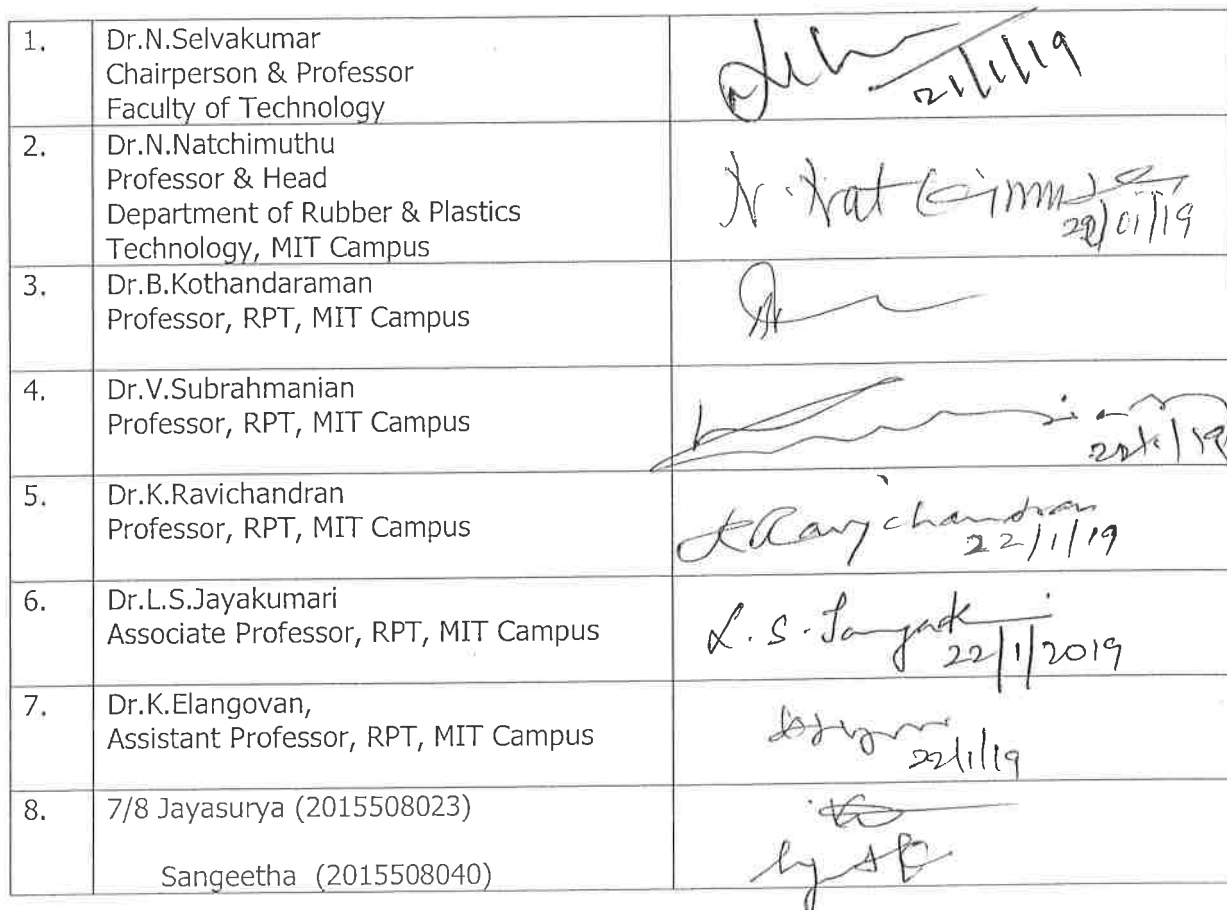 1. Dr.N.Selvakumar
Chairperson & Professor
Faculty of Technology
21/1/19
2. Dr.N.Natchimuthu
Professor & Head
Department of Rubber & Plastics
Technology, MIT Campus
N. Nat
/01/19
3. Dr.B.Kothandaraman
Professor, RPT, MIT Campus
4. Dr.V.Subrahmanian
Professor, RPT, MIT Campus
5. Dr.K.Ravichandran
Professor, RPT, MIT Campus
K Ravichandran
22/1/19
6. Dr.L.S.Jayakumari
Associate Professor, RPT, MIT Campus
L. S.
22/1/2019
7. Dr.K.Elangovan,
Assistant Professor, RPT, MIT Campus
22/1/19
8. 7/8 Jayasurya (2015508023)
Sangeetha (2015508040)